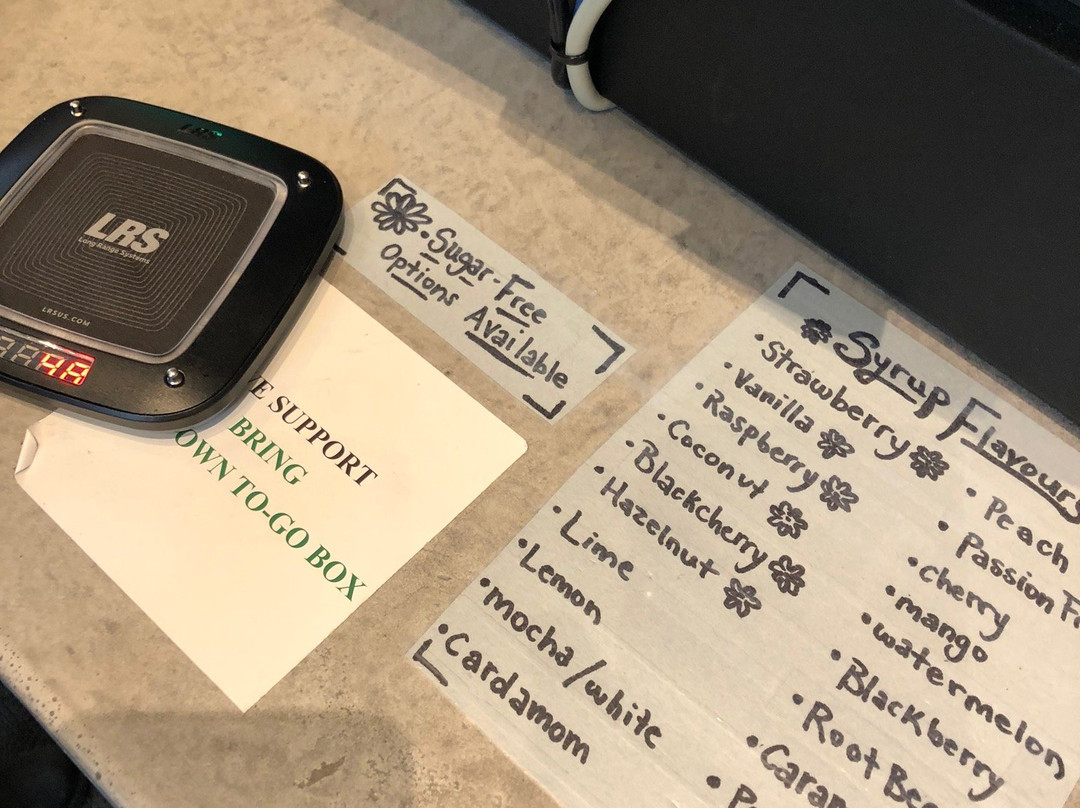 LRS
LRS
Long-Range Systems
LRSUS.COM
48
• Sugar-Free
Options Available
SUPPORT
BRING
OWN TO-GO BOX
Syrup Flavours
• Strawberry
• Vanilla
• Raspberry
• Coconut
• Blackcherry
• Hazelnut
• Lime
• Lemon
• mocha/white
• Cardamom
• Peach
• Passion
• cherry
• mango
• watermelon
• Blackberry
• Root